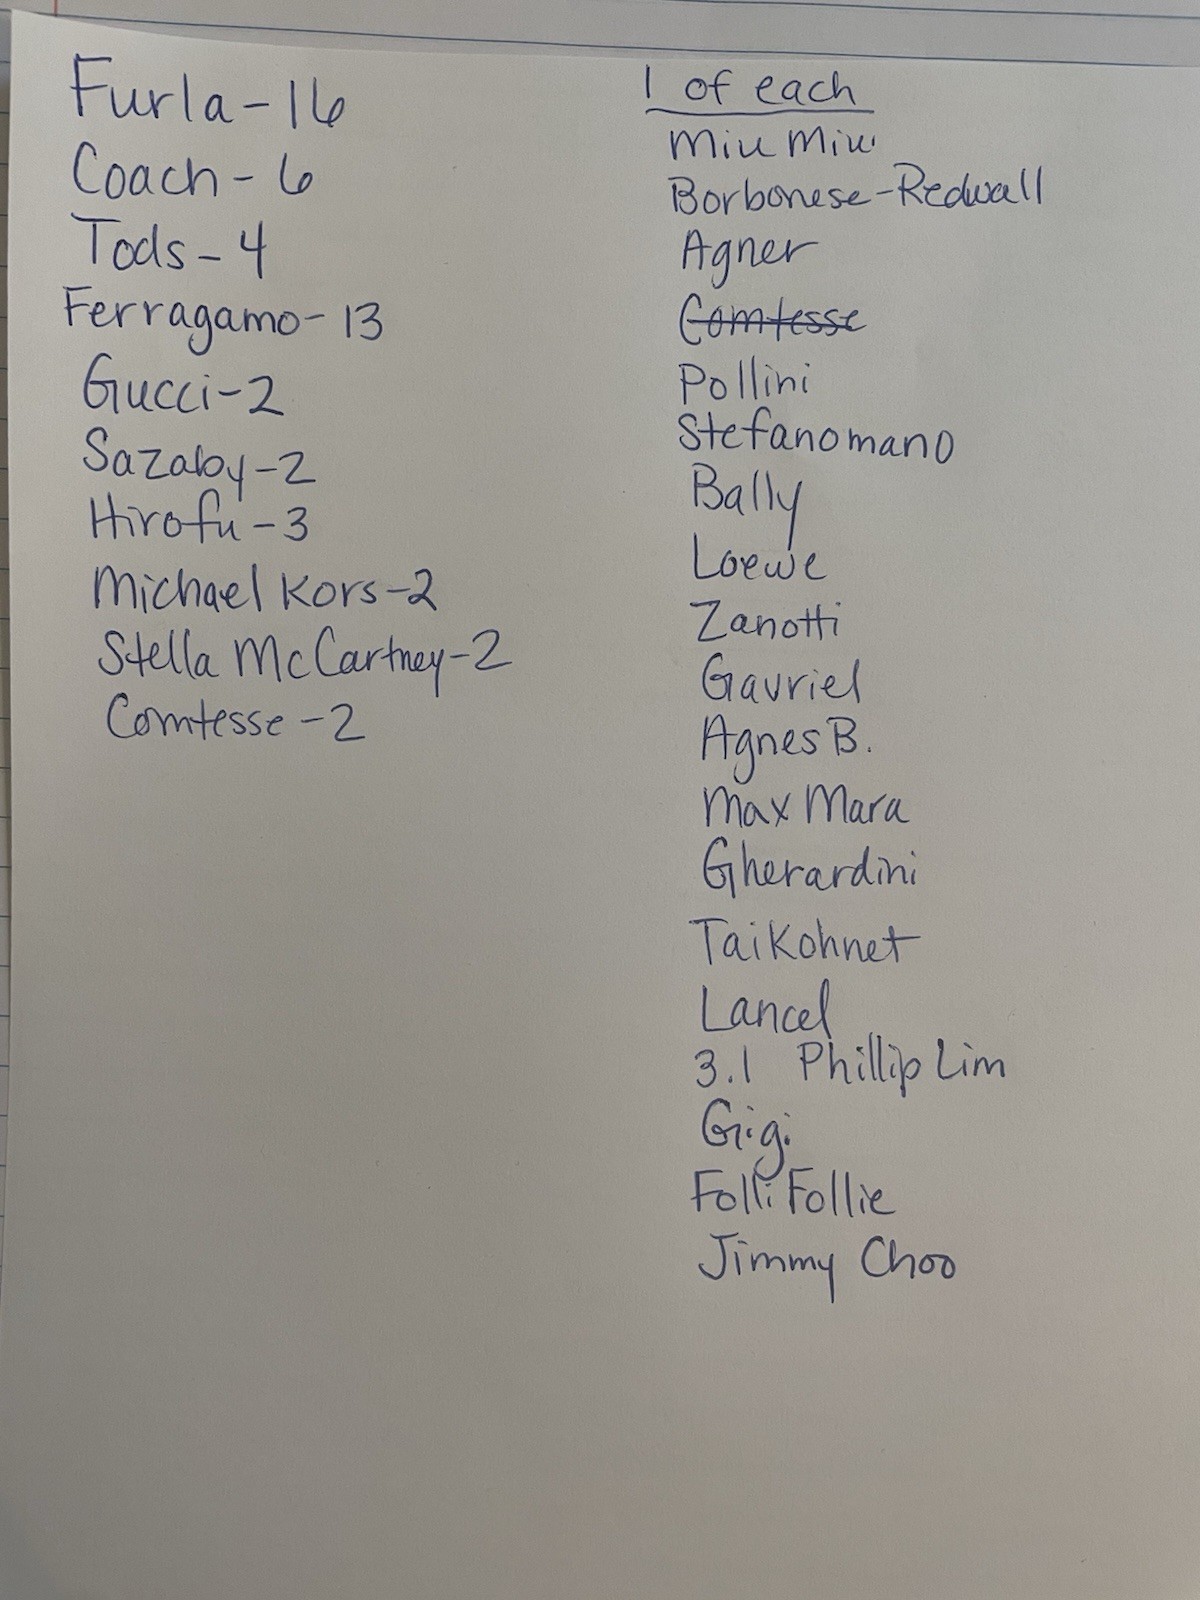 Furla-16
Coach-6
Tods-4
Ferragamo-13
Gucci-2
Sazaby-2
Hirofu-3
Michael Kors-2
Stella McCartney-2
Comtesse-2
1 of each
Miu Miu
Borbonese-Redwall
Agner
Comtesse
Pollini
Stefanomano
Bally
Loewe
Zanotti
Gavriel
Agnes B.
Max Mara
Gherardini
Taikohnet
Lancel
3.1 Phillip Lim
Gigi
Folli Follie
Jimmy Choo